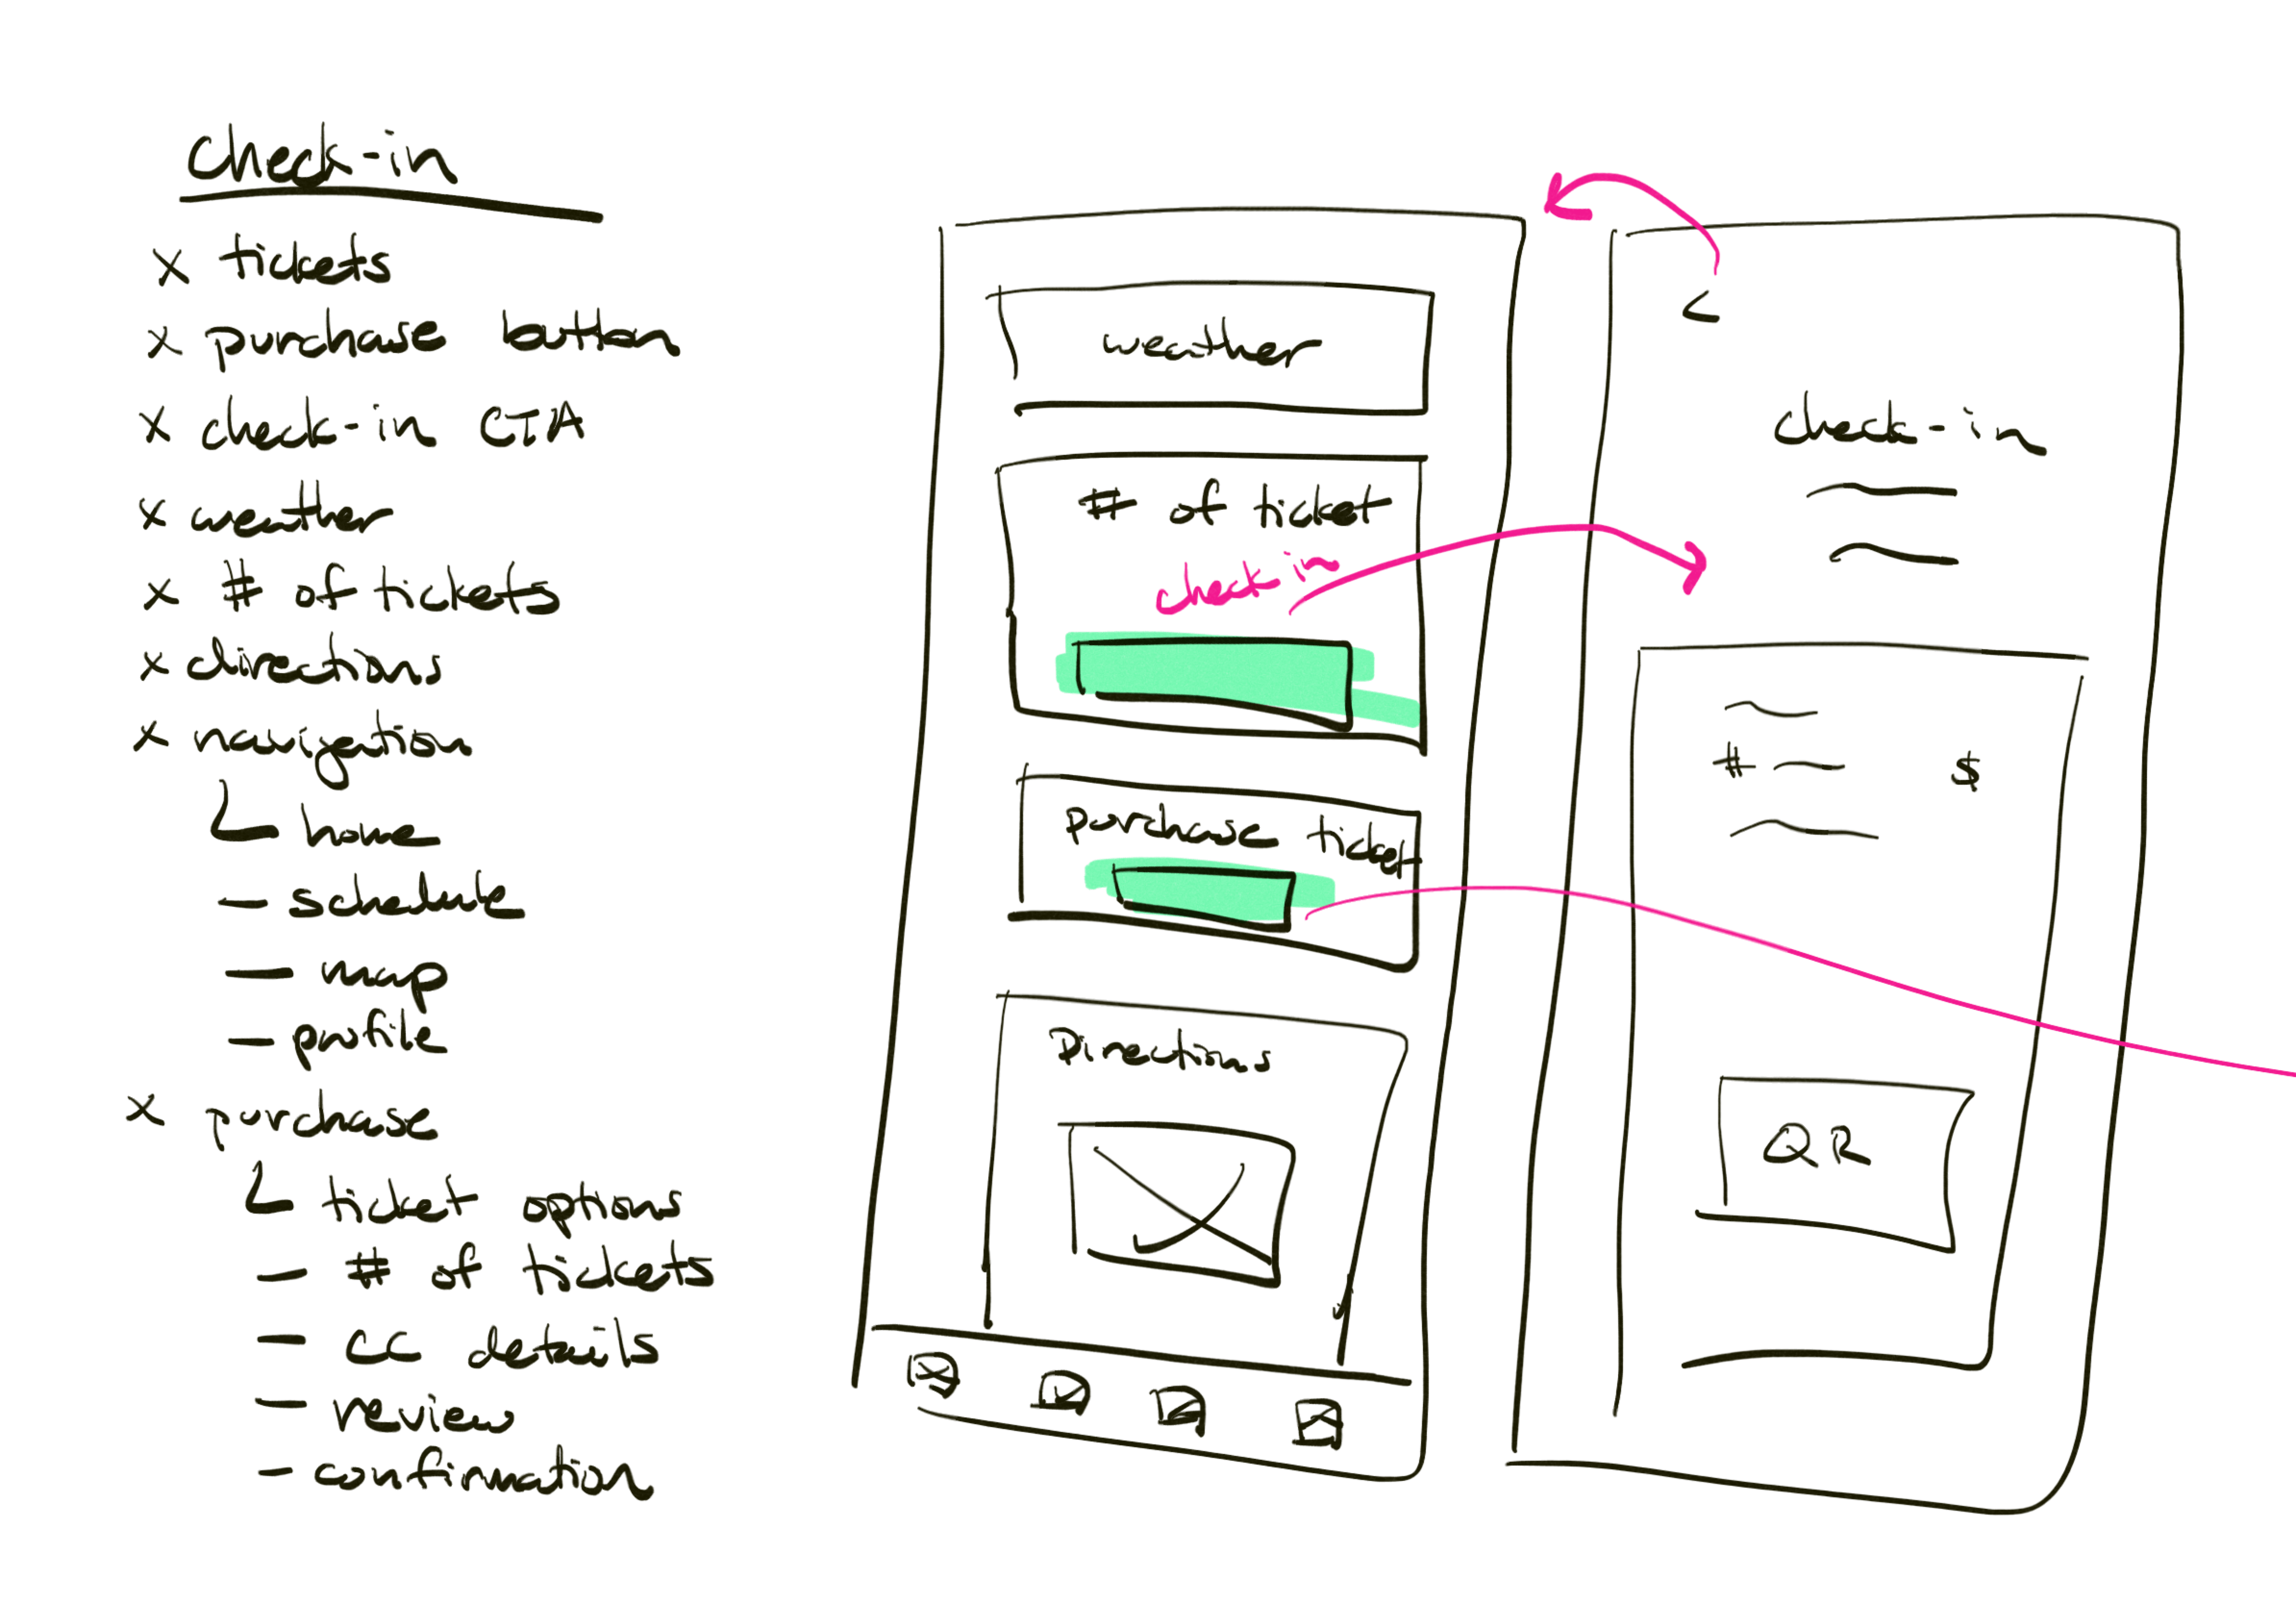 check-in
x tickets
x purchase button
x check-in CTA
x weather
x # of tickets
x directions
x navigation
home
- schedule
- map
- profile
x purchase
ticket options
- # of tickets
- cc details
- review
- confirmation
weather
# of ticket
check in
purchase ticket
Directions
<
check-in
# $
QR